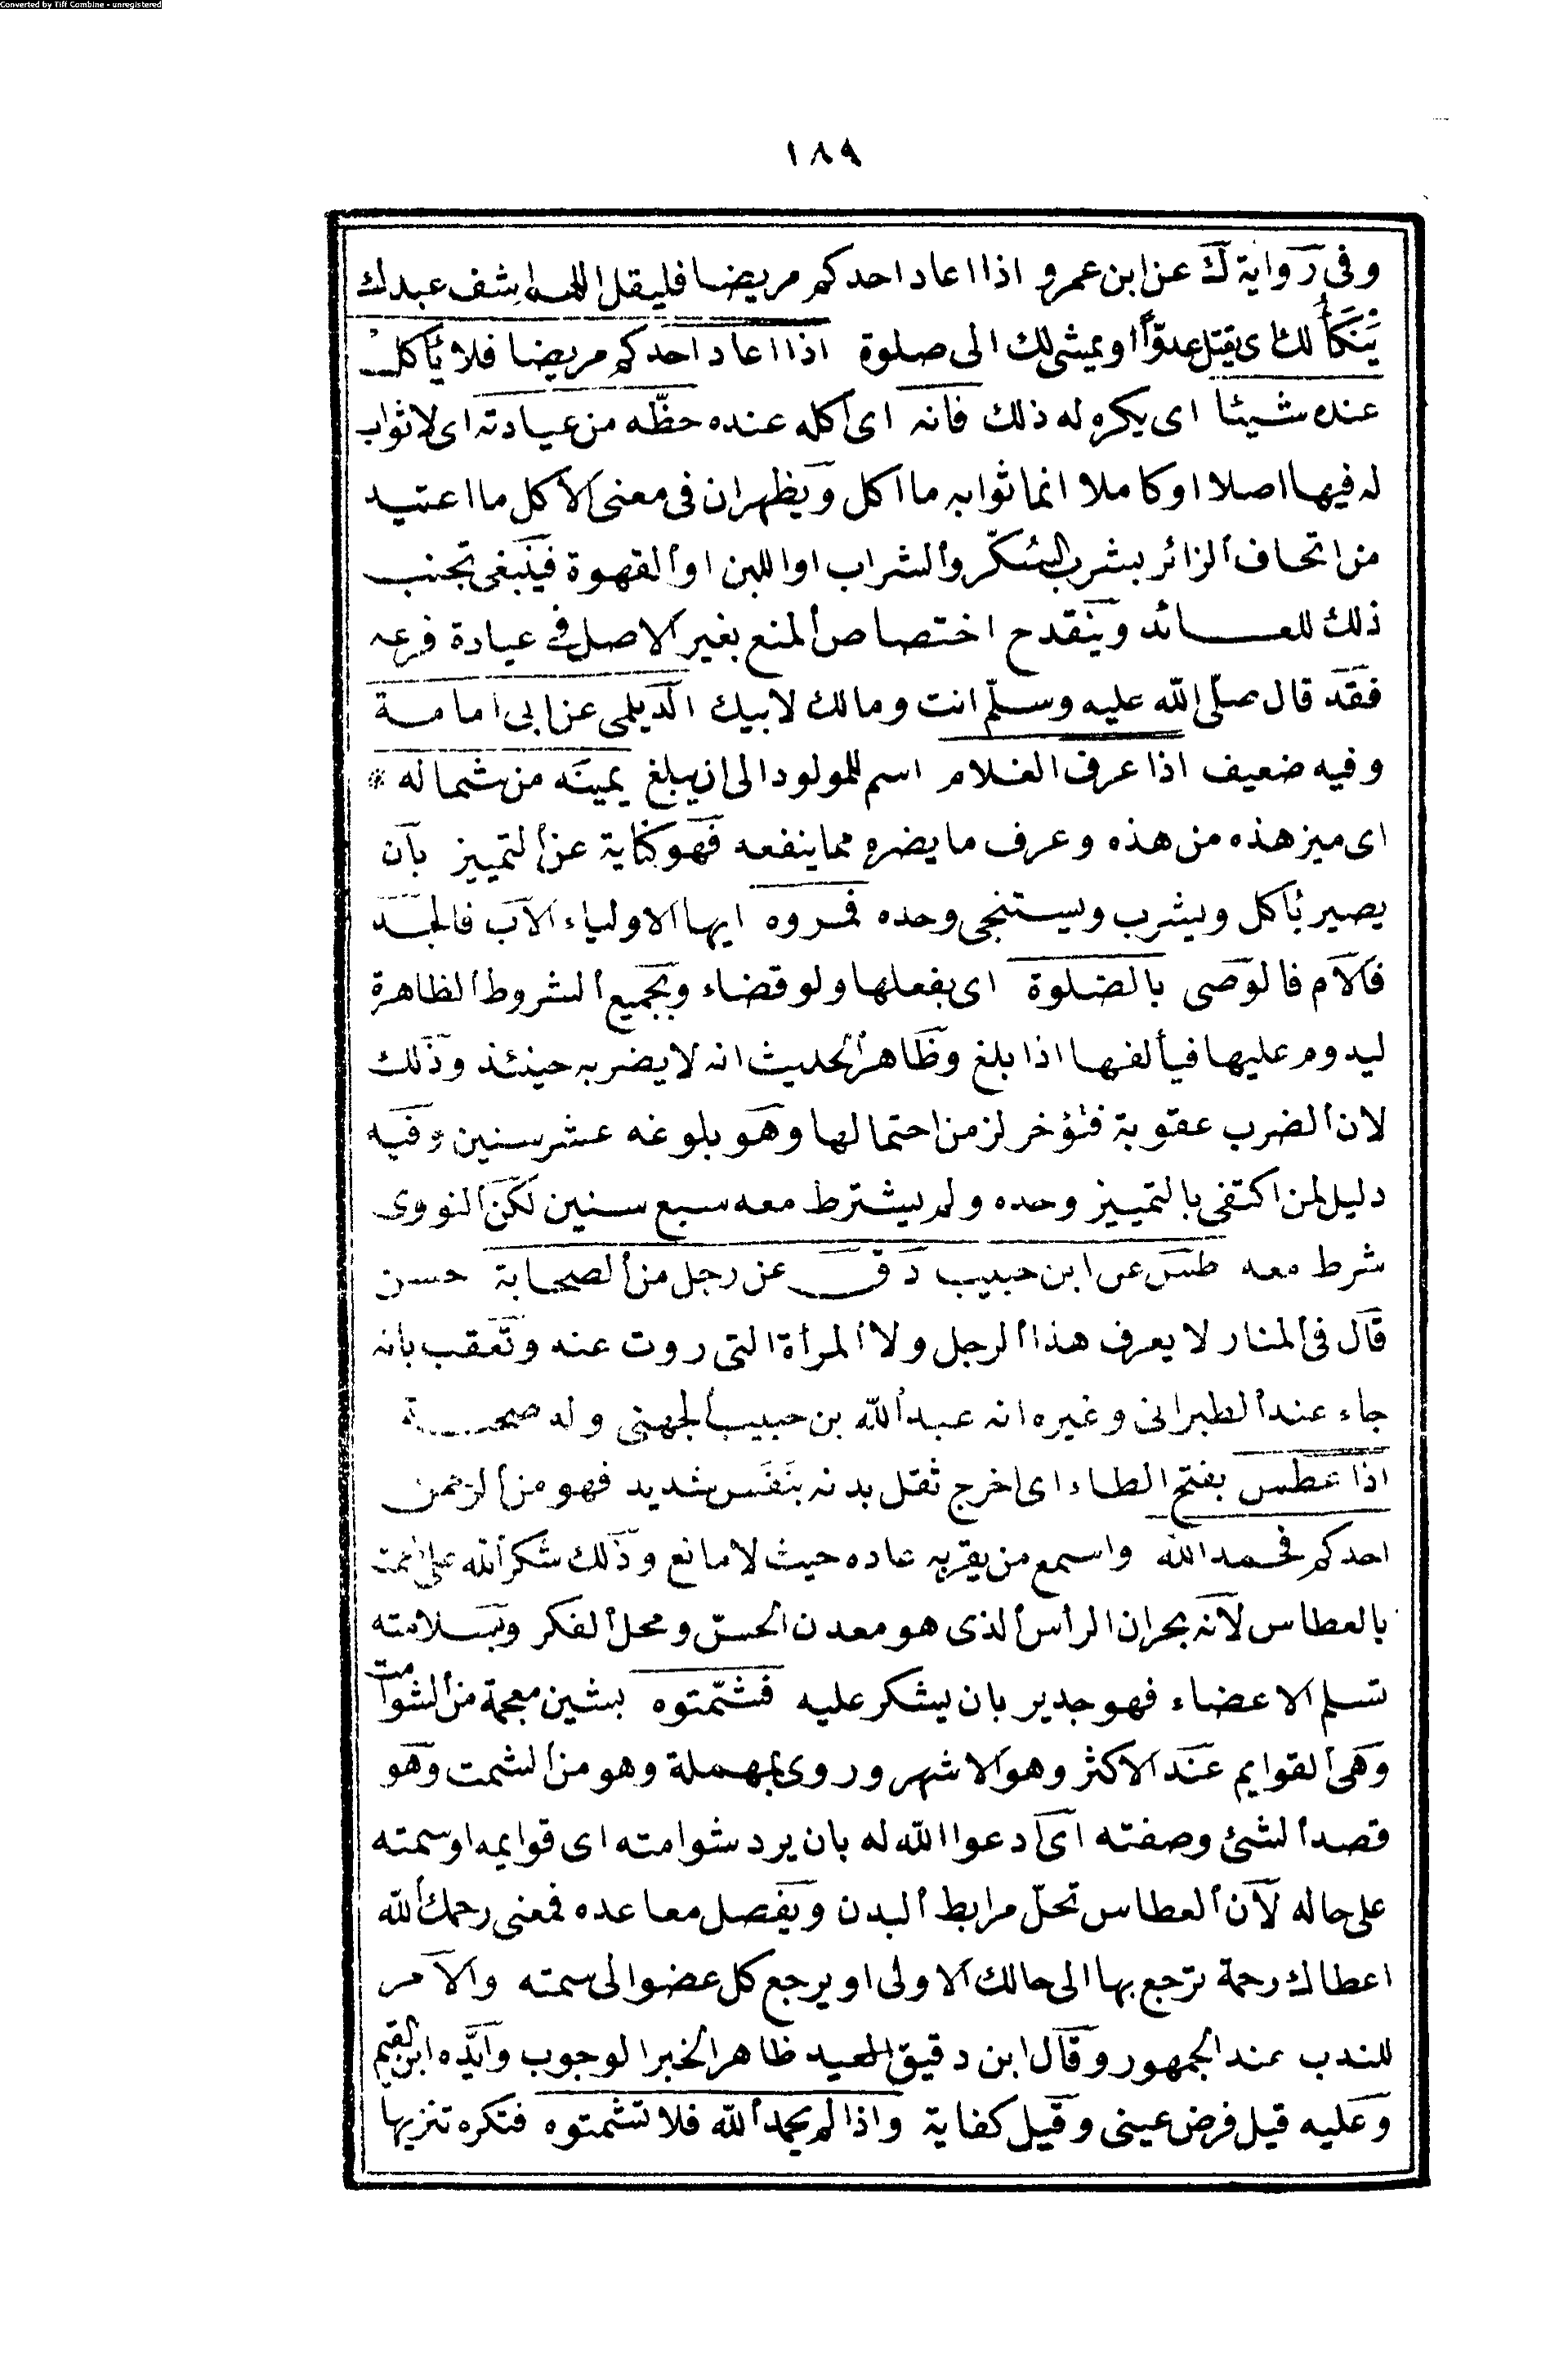 Converted by Tiff Combine - unregistered
١٨٩
وفى رواية ك عن ابن عمرو اذا عاد احدكم مريضا فليقل اللهم اشف عبدك
يَنْكَأُ لك اى يقتل عدوًّا او يمشى لك الى صلوة اذا عاد احدكم مريضا فلا يأكلْ
عنده شيئا اى يكره له ذلك فانه اى اكله عنده حظّه من عيادته اى لا ثواب
له فيها اصلا او كاملا انما ثوابه ما اكل ويظهر ان فى معنى الاكل ما اعتيد
من اتحاف الزائر بشرب السُكّر والشراب او اللبن او القهوة فينبغى تجنب
ذلك للعائد وينقدح اختصاص المنع بغير الاصل فى عيادة فرعه
فقد قال صلّى الله عليه وسلّم انت ومالك لابيك الديلمى عن ابى امامة
وفيه ضعيف اذا عرف الغلام اسم للمولود الى ان يبلغ يمينه من شماله *
اى ميز هذه من هذه وعرف ما يضره مما ينفعه فهو كناية عن التمييز بان
يصير يأكل ويشرب ويستنجى وحده فمروه ايها الاولياء الاب فالجد
فالام فالوصى بالصلوة اى بفعلها ولو قضاء وبجميع الشروط الظاهرة
ليدوم عليها فيألفها اذا بلغ وظاهر الحديث انه لا يضربه حينئذ وذلك
لان الضرب عقوبة فتؤخر لزمن احتمالها وهو بلوغه عشر سنين وفيه
دليل لمن اكتفى بالتمييز وحده ولم يشترط معه سبع سنين لكن النووى
شرط معه طس عن ابن حبيب د ق عن رجل من الصحابة حسن
قال فى المنار لا يعرف هذا الرجل ولا المرأة التى روت عنه وتعقب بانه
جاء عند الطبرانى وغيره انه عبد الله بن حبيب الجهنى وله صحبة
اذا عطس بفتح الطاء اى اخرج ثقل بدنه بنَفَس شديد فهو من الرحمن
احدكم فحمد الله واسمع من يقربه عاده حيث لا مانع وذلك شكر الله على نعمته
بالعطاس لانه بحران الرأس الذى هو معدن الحسّ ومحل الفكر وبسلامته
تسلم الاعضاء فهو جدير بان يشكر عليه فشمّتوه بشين معجمة من الشوامت
وهى القوايم عند الاكثر وهو الاشهر وروى بمهملة وهو من الشمت وهو
قصد الشئ وصفته اى ادعوا الله له بان يرد شوامته اى قوايمه او سمته
على حاله لان العطاس تحلّ مرابط البدن ويفصل معاعده فمعنى رحمك الله
اعطاك رحمة ترجع بها الى حالك الاولى او يرجع كل عضو الى سمته والامر
للندب عند الجمهور وقال ابن دقيق العيد ظاهر الخبر الوجوب وايّده ابن القيم
وعليه قيل فرض عينى وقيل كفاية واذا لم يحمد الله فلا تشمتوه فتكره تنزيها